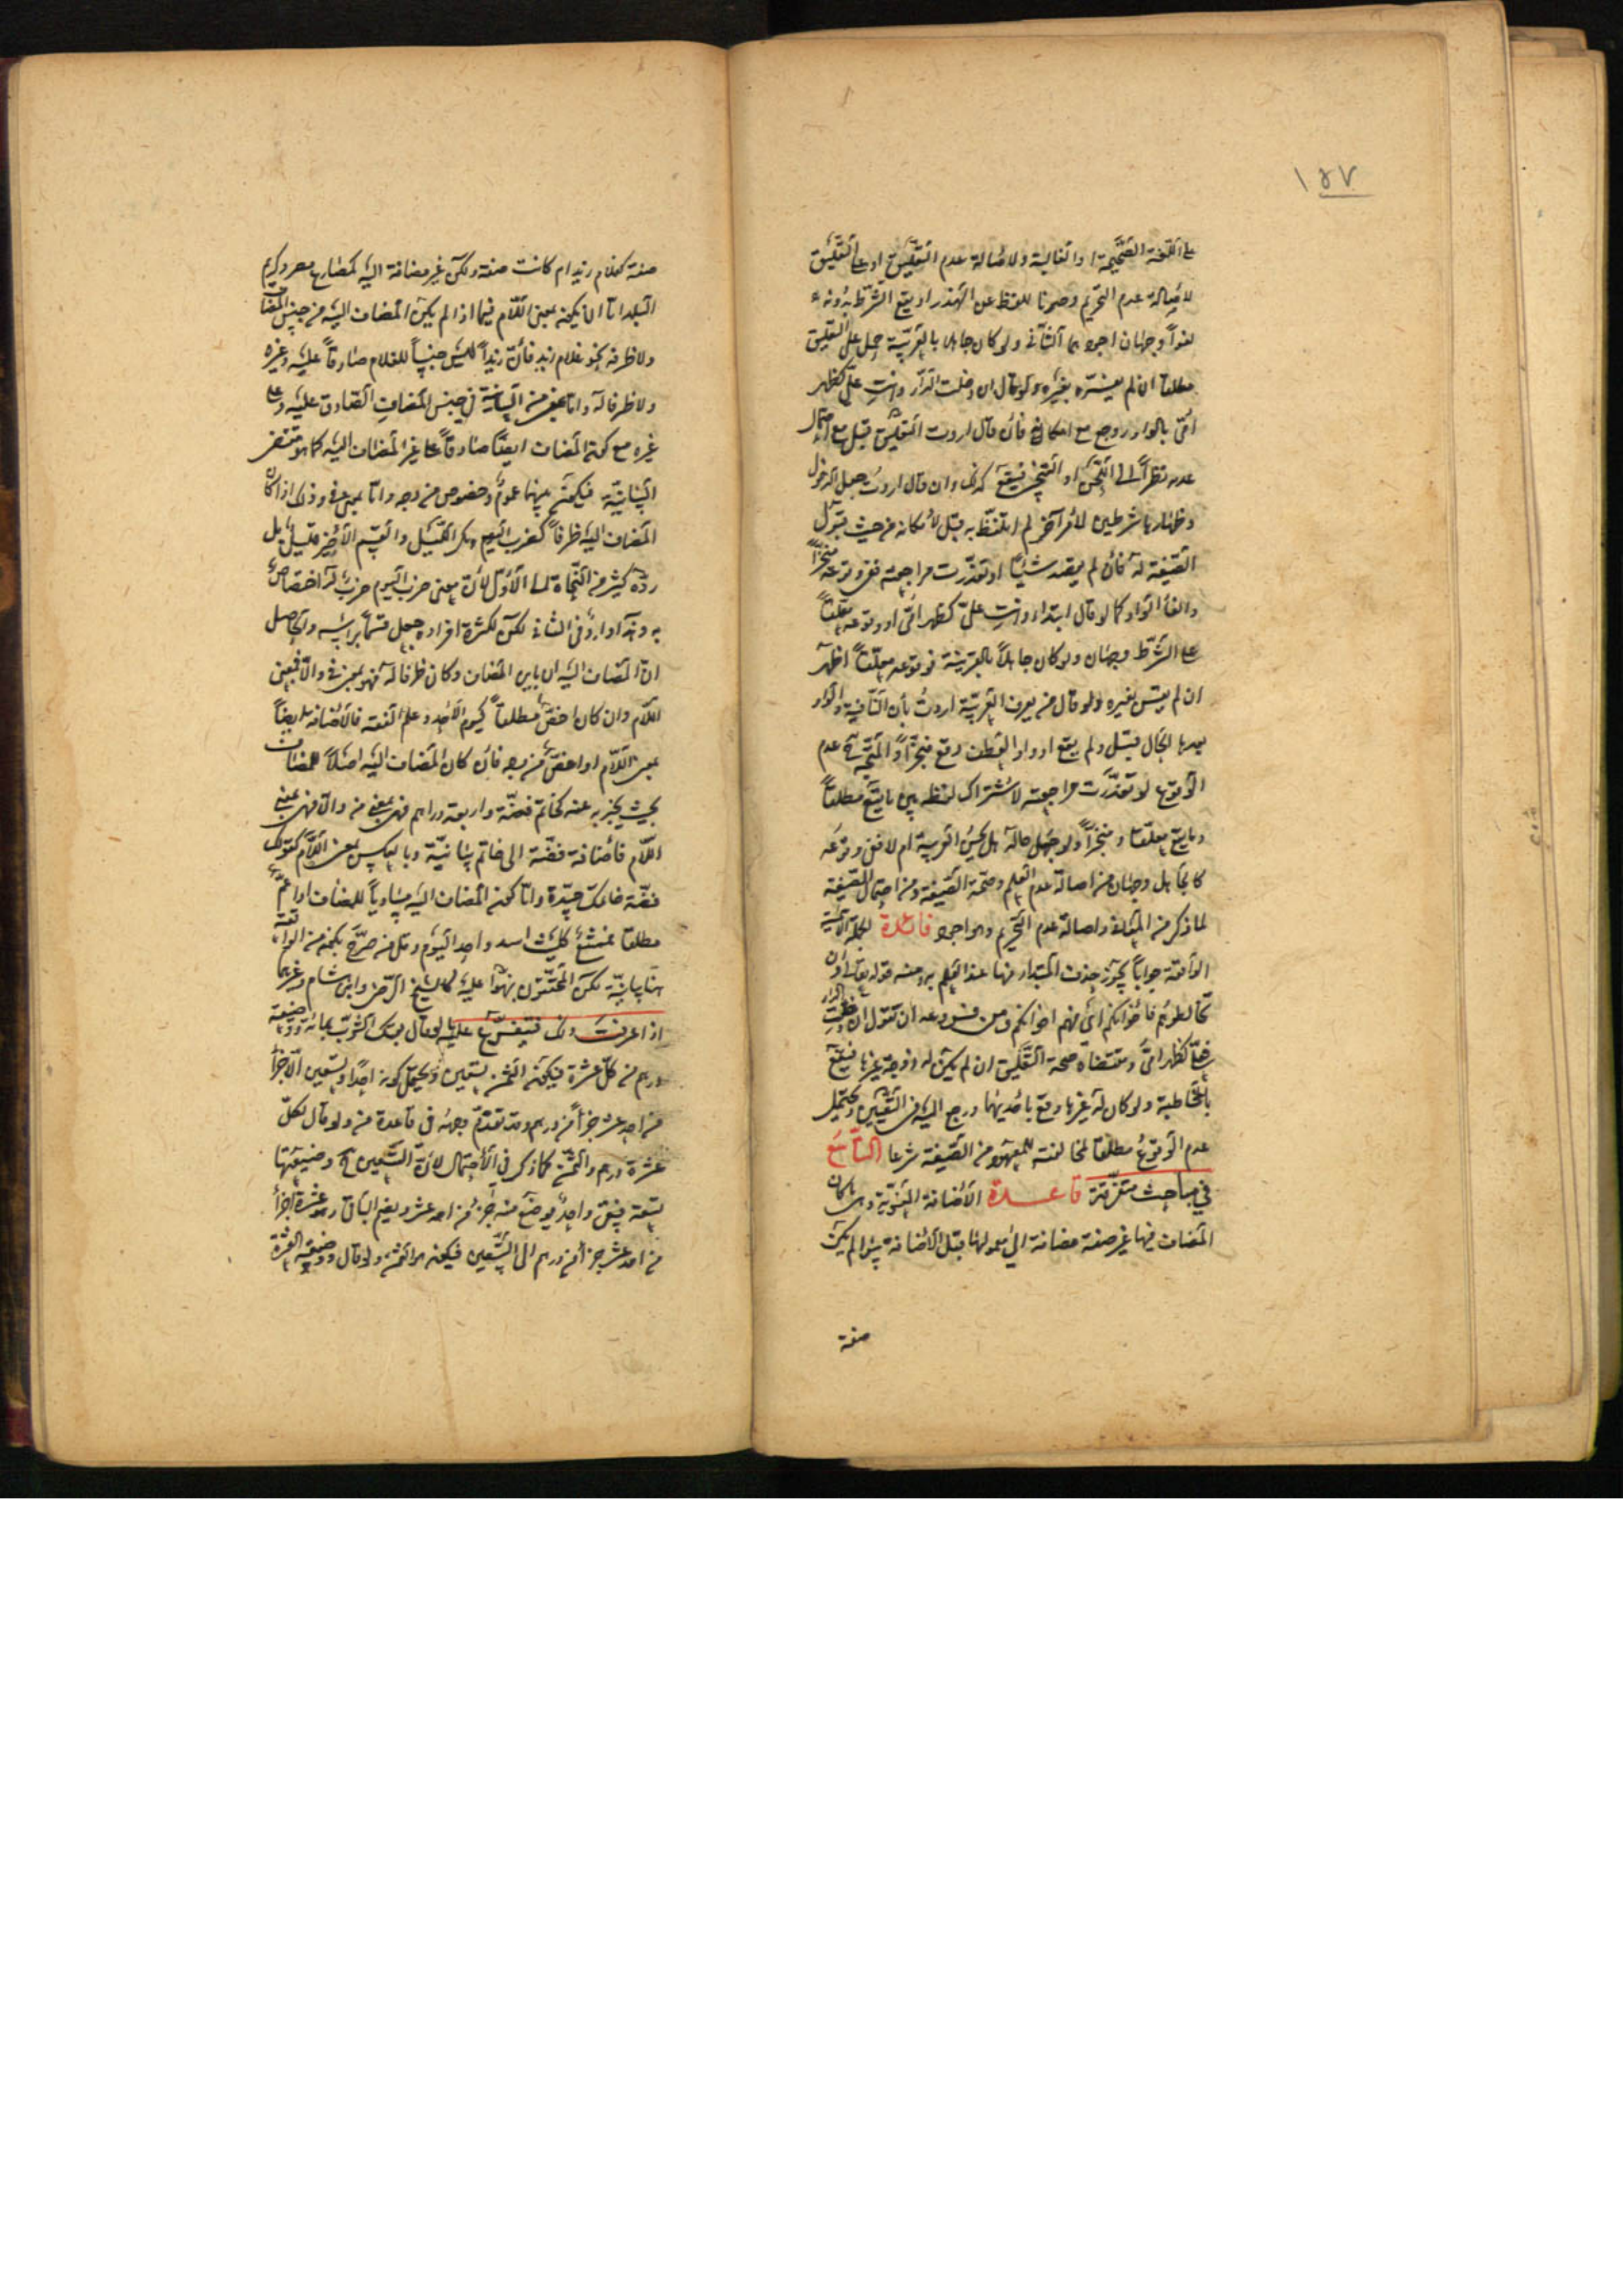 ١٥٧
على اللغة الصحيحة او الغالبة ولاصالة عدم التعليق او على التعليق
لاصالة عدم التحريم وصونا للفظ عن الهذر او يقع الشرط بدونه
لغواً وجهان اجودهما الثاني ولو كان جاهلا بالعربية حمل على التعليق
مطلقا ان لم يفسره بغيره ولو قال ان دخلت الدار وانت علي كظهر
امي بالواو روجع مع امكانه فان قال اردت التعليق قبل مع احتمال
عدمه نظراً الى اللحن او التنجيز فيقع كذلك وان قال اردت جعل الدخول
وظهارها شرطين لامر آخر لم اتلفظ به قبل لامكانه من حيث قبول
الصيغة له فان لم يقصد شيئاً او تعذرت مراجعته ففي وقوعه منجزاً
والغاء الواو كما لو قال ابتداء وانت علي كظهر امي او وقوعه معلقاً
على الشرط وجهان ولو كان جاهلاً بالعربية فوقوعه معلقاً اظهر
ان لم يفسر بغيره ولو قال من يعرف العربية اردت بأن النافية والواو
بعدها الحال قبل ولم يقع او واو العطف وقع منجزاً والمتجه ح عدم
الوقوع لو تعذرت مراجعته لاشتراك لفظه بين ما يقع مطلقاً
وما يقع معلقا ومنجزاً ولو جهل حاله هل يحسن العربية ام لا ففي وقوعه
كالجاهل وجهان من اصالة عدم العلم وصحة الصيغة ومن احتمال الصيغة
لما ذكر من المسئلة واصالة عدم التحريم وهو اجود فائدة الجملة الاسمية
الواقعة جواباً يجوز حذف المبتدأ منها عند العلم به ومنه قوله تعالى وان
تخالطوهم فاخوانكم أي فهم اخوانكم ومن فروعه ان تقول ان دخلت الدار
كظهر امي ومقتضاه صحة التعليق ان لم يكن له زوجة غيرها فيقع
بالمخاطبة ولو كان له غيرها وقع باحديهما ورجع اليه في التعيين ويحتمل
عدم الوقوع مطلقا لمخالفته للمعهود من الصيغة شرعا التاسع
في مباحث متفرقة قاعدة الاضافة المعنوية وهي ما كان
المضاف فيها غير صفة مضافة الى معمولها قبل الاضافة سواء لم يكن
صفة
صفة كغلام زيد ام كانت صفة ولكن غير مضافة اليه كمضارع مصر وكريم
البلد اما ان يكون بمعنى اللام فيما اذا لم يكن المضاف اليه من جنس المضاف
ولا ظرفه نحو غلام زيد فان زيداً ليس جنساً للغلام صادقاً عليه وغيره
ولا ظرفا له واما بمعنى من البيانية في جنس المضاف الصادق عليه وعلى
غيره مع كون المضاف ايضا صادقاً على غير المضاف اليه كما هو مقتضى
البيانية فيكون بينهما عموم وخصوص من وجه واما بمعنى في وذلك اذا كان
المضاف اليه ظرفاً كضرب اليوم ومكر الليل والقسم الاخير قليل بل
رده كثير من النحاة الى الأول لأن معنى ضرب اليوم ضرب له اختصاص
به وهذا وارد في الثاني لكن لكثرة افراده جعل قسماً برأسه والحاصل
ان المضاف اليه ان باين المضاف وكان ظرفا له فهو بمعنى في والا فبمعنى
اللام وان كان اخص مطلقاً كيوم الاحد وعلم الفقه فالاضافة ايضاً
بمعنى اللام او اخص من وجه فان كان المضاف اليه اصلاً للمضاف
بحيث يخبر به عنه كخاتم فضة واربعة دراهم فهي بمعنى من والا فهي بمعنى
اللام فاضافة فضة الى خاتم بيانية وبالعكس بمعنى اللام كقولك
فضة خاتمك جيدة واما كون المضاف اليه مساوياً للمضاف او اعم
مطلقا فممتنع كليث اسد واحد اليوم وقل من صرح بكون من الواقعة
هنا بيانية لكن المحققون نبهوا عليه كالشيخ الرضي وابن هشام وغيرهما
اذا عرفت ذلك فيتفرع عليه ما لو قال بعتك الثوب بمائة ووضيعة
درهم من كل عشرة فيكون الثمن تسعين ويحتمل كونه احداً وتسعين الا جزأ
من احد عشر جزأ من درهم وقد تقدم وجهه في قاعدة من ولو قال لكل
عشرة درهم والثمن كما ذكر في الاحتمال لان التسعين ح وضيعتها
تسعة فيبقى واحد يوضع منه جزء من احد عشر ويضم الباقي وهو عشرة اجزأ
من احد عشر جزأ من درهم الى التسعين فيكون هو الثمن ولو قال ووضيعة العشرة